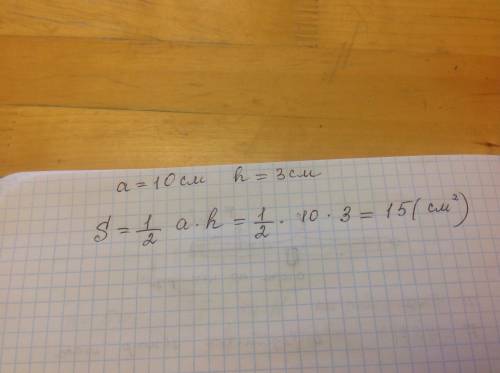 a = 10 см h = 3 см
S = 1/2 a · h = 1/2 · 10 · 3 = 15 (см²)